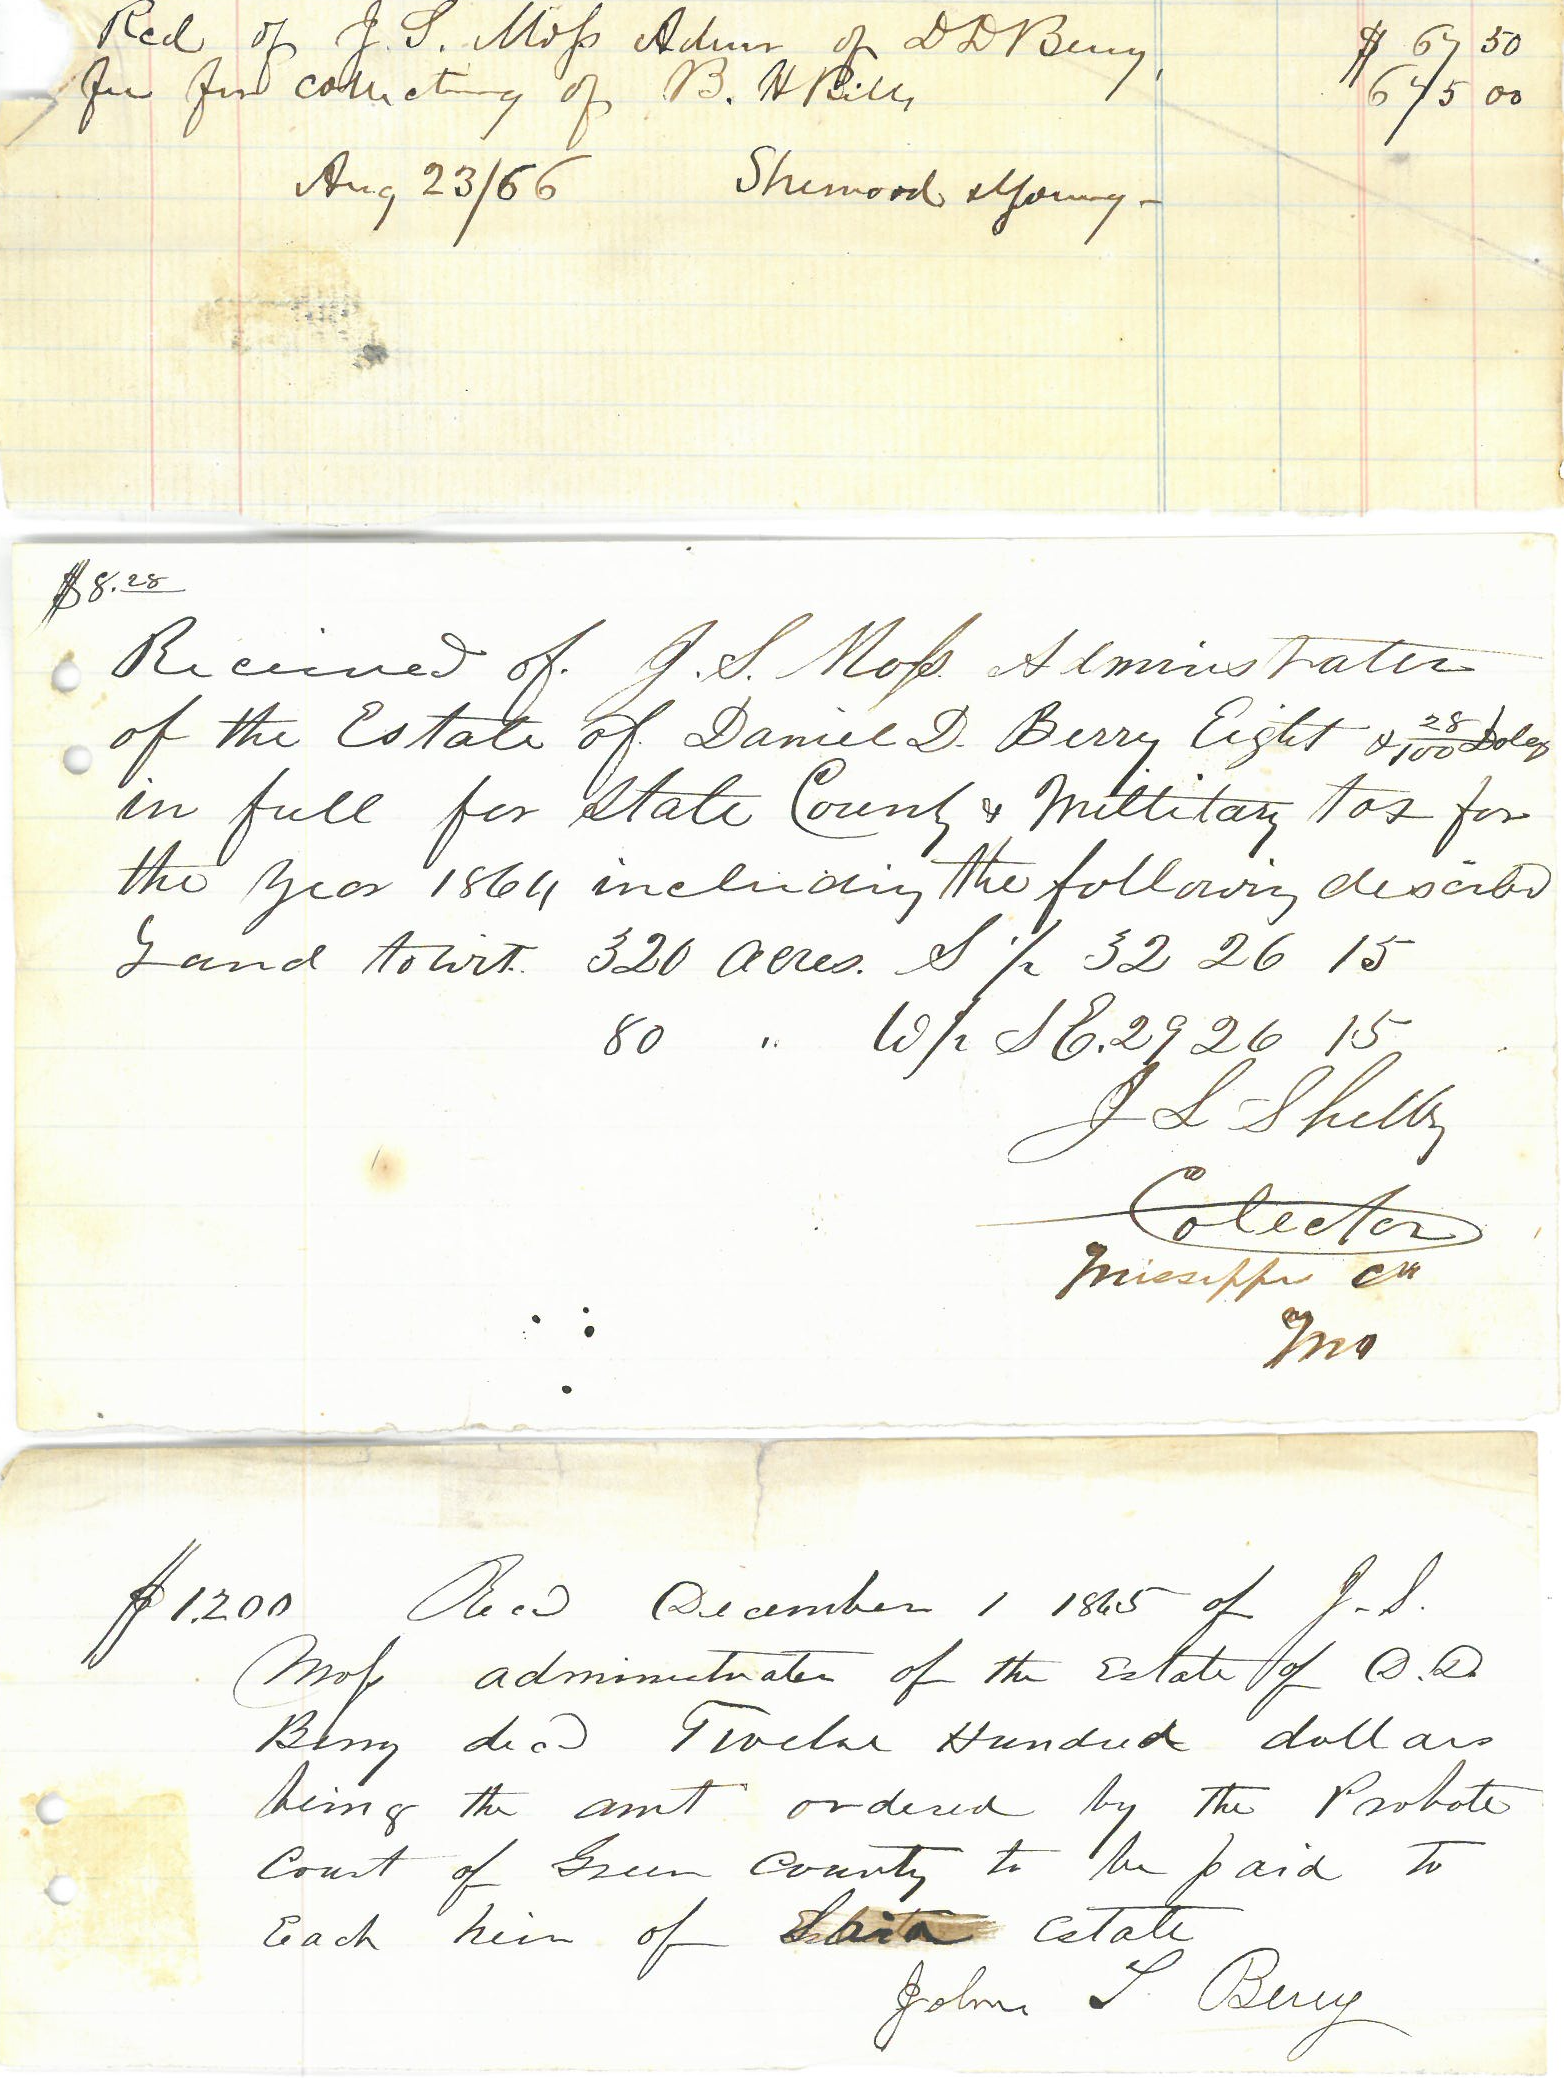 Recd of J. S. Moss Admr of D D Berry, $ 67 50
fee for collecting of B. H Bills 675 00
Aug 23/66 Sherwood & Young -
$8.28
Received of. J. S. Moss. Adminustrater
of the Estate of. Daniel D. Berry Eight & 28/100 Dolers
in full for State County & Millitary tax for
the year 1864 including the following described
Land towit. 320 acres. S 1/2 32 26 15
80 " W 1/2 S E. 29 26 15
J L Shelby
Colector
Missippi Co
Mo
$1.200 Recd December 1 1865 of J. S.
Moss administrator of the Estate of D. D.
Berry decd Twelve Hundred dollars
being the amt ordered by the Probate
Court of Green County to be paid to
Each heir of Said estate
John S. Berry